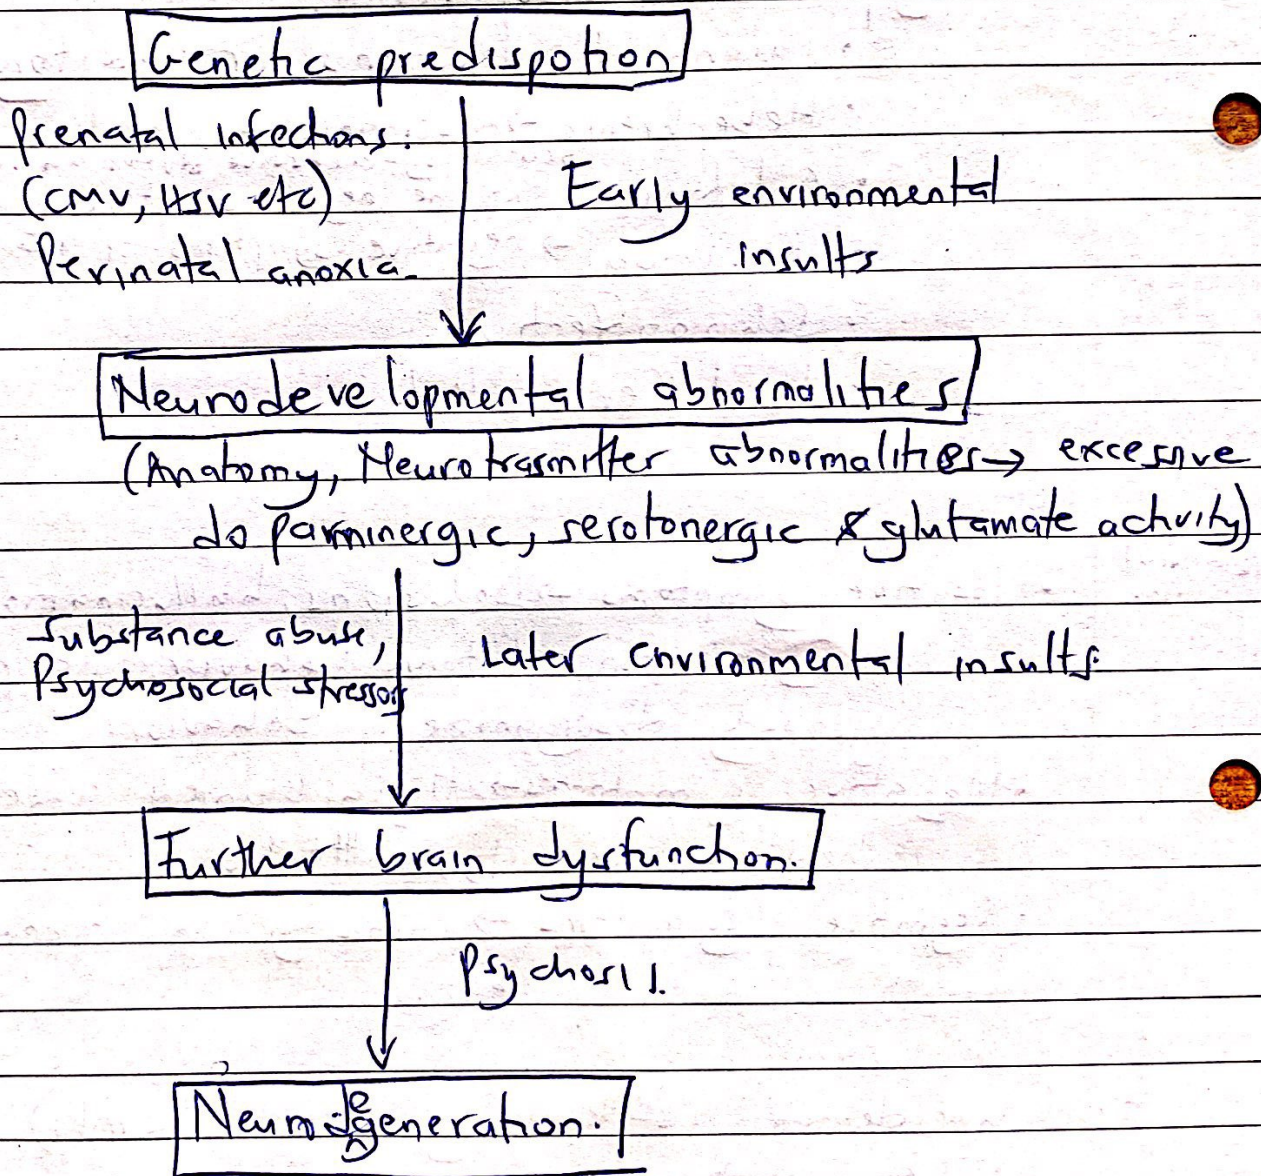 Genetic predispotion
Prenatal infections.
(CMV, HSV etc)
Perinatal anoxia.
Early environmental
insults
Neurodevelopmental abnormalities
(Anatomy, Neurotrasmitter abnormalities → excessive
doparminergic, serotonergic & glutamate activity)
Substance abuse,
Psychosocial stressors
Later environmental insults.
Further brain dysfunction.
Psychosis.
Neurodegeneration.